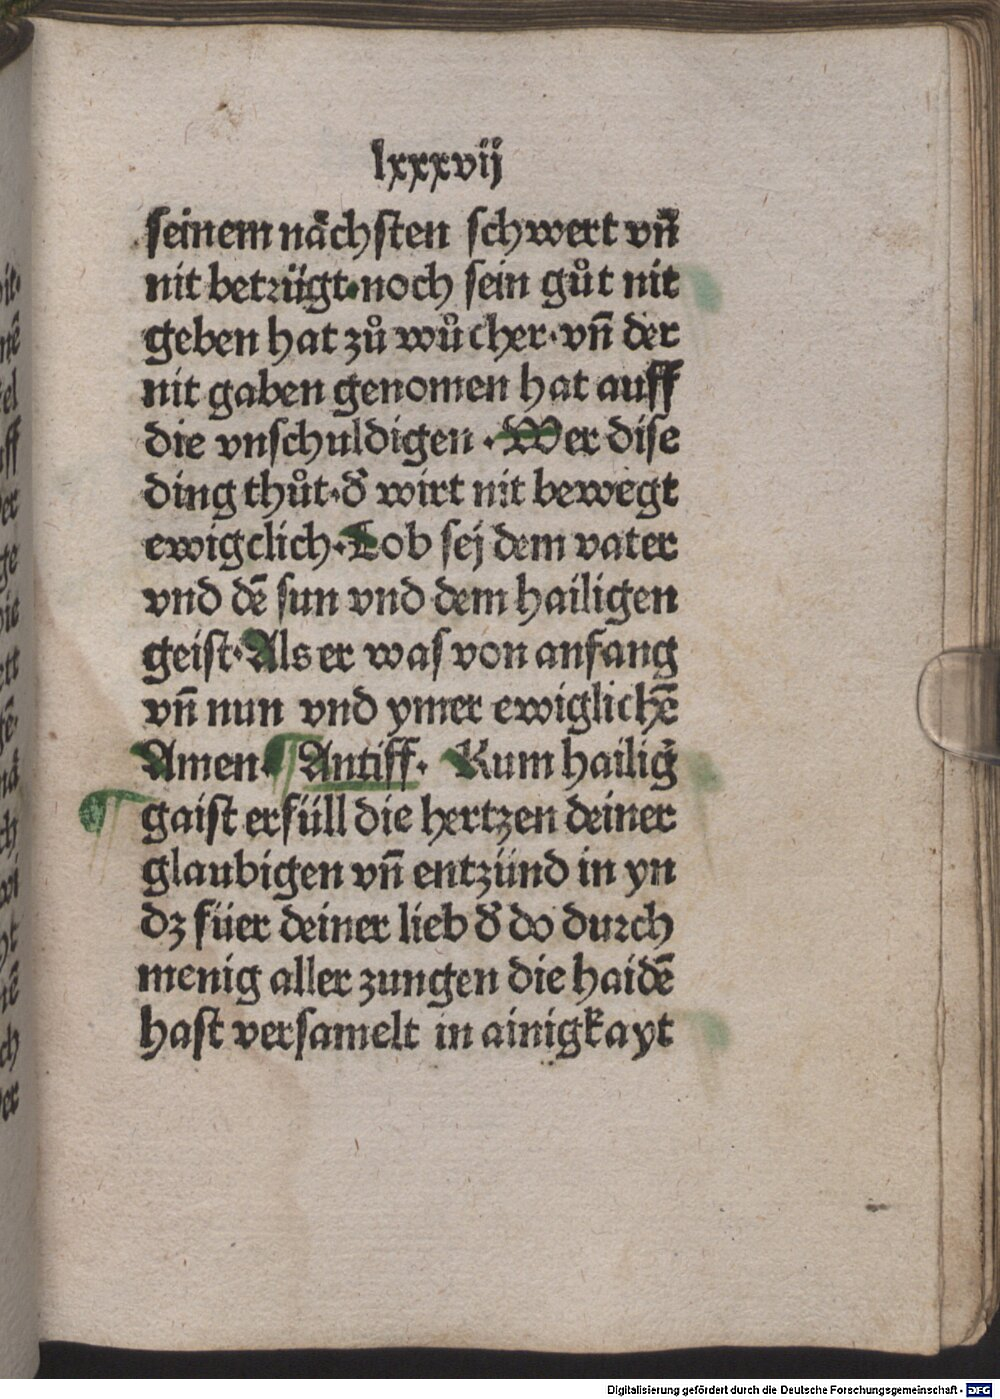 lxxxvij
seinem nächsten schwert vn̄
nit betrügt·noch sein gůt nit
geben hat zů wůcher·vn̄ der
nit gaben genomen hat auff
die vnschuldigen·Wer dise
ding thůt·d̕ wirt nit bewegt
ewigclich·Lob sej dem vater
vnd dē sun vnd dem hailigen
geist·Als er was von anfang
vn̄ nun vnd ymer ewiglichē
Amen· Antiff· Kum hailig̕
gaist erfüll die hertzen deiner
glaubigen vn̄ entzünd in yn
dz füer deiner lieb d̕ do durch
menig aller zungen die haidē
hast versamelt in ainigkayt
Digitalisierung gefördert durch die Deutsche Forschungsgemeinschaft - DFG